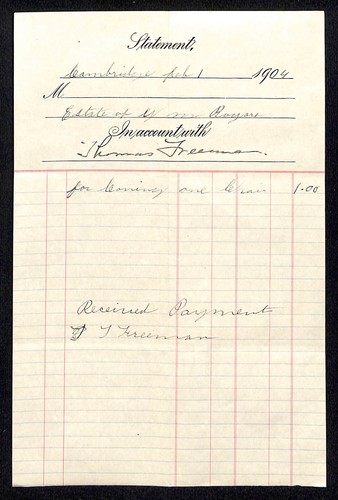 Statement,
Cambridge Feb 1 1904
M
Estate of M
In account with
Thomas Freeman.
for one 1.00
Received Payment
T Freeman